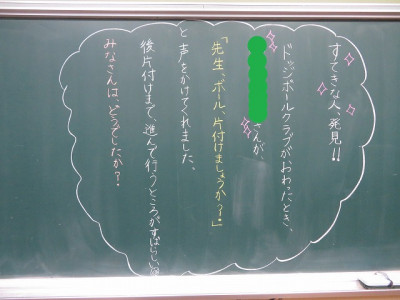 すてきな人、発見!!
ドッジボールクラブがおわったとき、
さんが、
「先生、ボール、片付けましょうか？」
と声をかけてくれました。
後片付けまで、進んで行うところがすばらしい
みなさんは、どうでしたか？